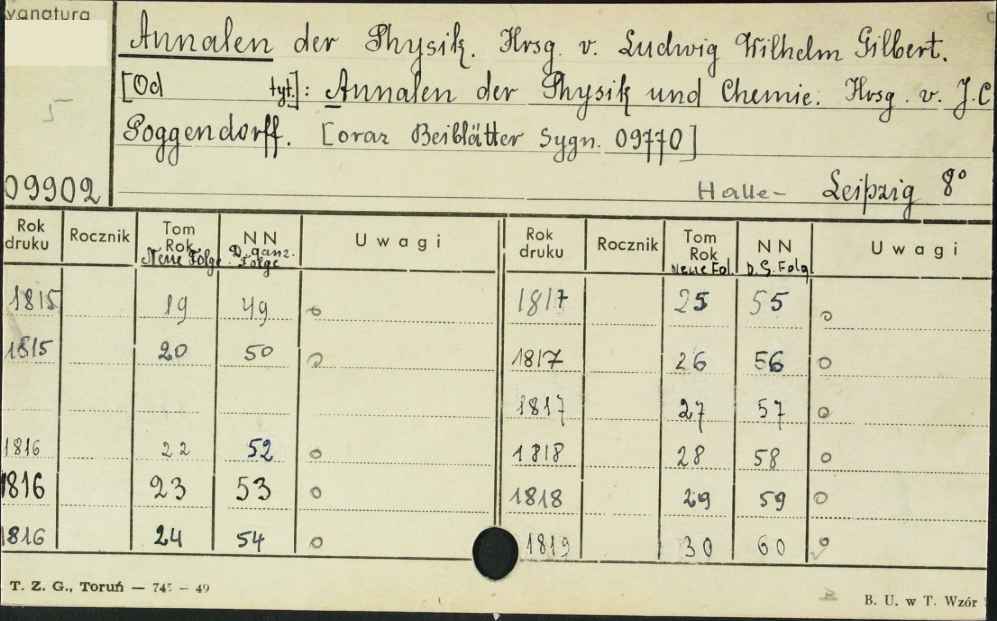 Annalen der Physik. Hrsg. v. Ludwig Wilhelm Gilbert.
[Od tyt.]: Annalen der Physik und Chemie. Hrsg. v. J.C
Poggendorff. [oraz Beiblätter Sygn. 09770]
09902 Halle- Leipzig 8°
Rok druku Rocznik Tom Rok Neue Folge N N D. ganz. Folge Uwagi Rok druku Rocznik Tom Rok Neue Fol. N N D. G. Folg Uwagi
1815 19 49 o 1817 25 55 o
1815 20 50 o 1817 26 56 o
1817 27 57 o
1816 22 52 o 1818 28 58 o
1816 23 53 o 1818 29 59 o
1816 24 54 o 1819 30 60 o
T. Z. G., Toruń — 745 — 49 B. U. w T. Wzór